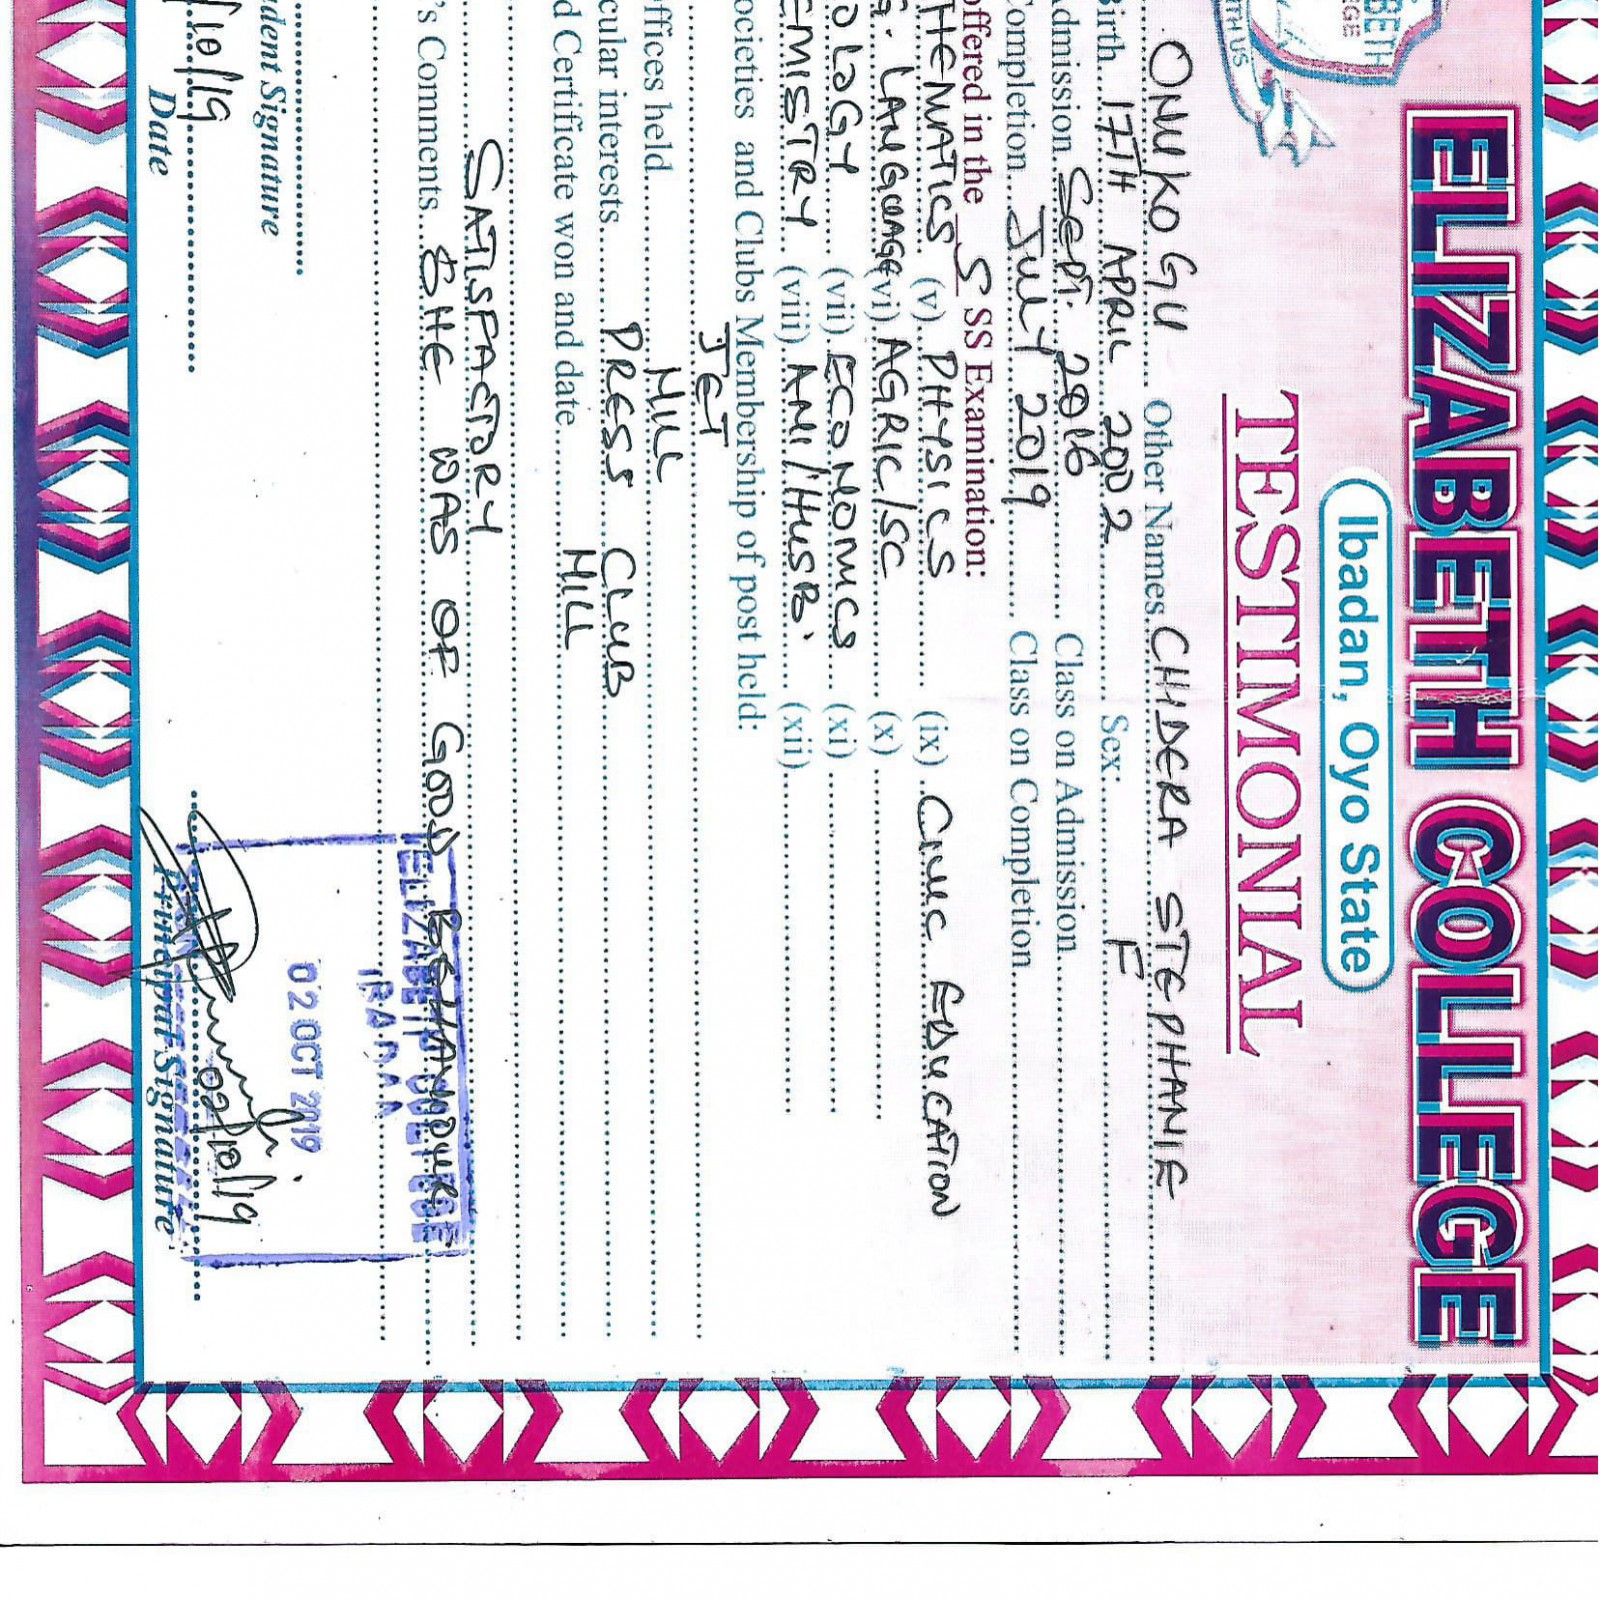 ELIZABETH COLLEGE
Ibadan, Oyo State
BETH
EGE
TH US
TESTIMONIAL
ONUKOGU Other Names CHIDERA STEPHANIE
Birth 17TH APRIL 2002 Sex: F
Admission SEPT. 2016 Class on Admission
Completion JULY 2019 Class on Completion
offered in the S SS Examination:
THEMATICS (v) PHYSICS (ix) CIVIC EDUCATION
G. LANGUAGE (vi) AGRIC/SC (x)
OLOGY (vii) ECONOMICS (xi)
EMISTRY (viii) ANI/HUSB. (xii)
ocieties and Clubs Membership of post held:
JET
offices held NILL
cular interests PRESS CLUB
d Certificate won and date NILL
SATISFACTORY
's Comments SHE WAS OF GOOD BEHAVIOUR
ELIZABETH COLLEGE
IBADAN
02 OCT 2019
dent Signature
/10/19 02/10/19
Date Principal Signature